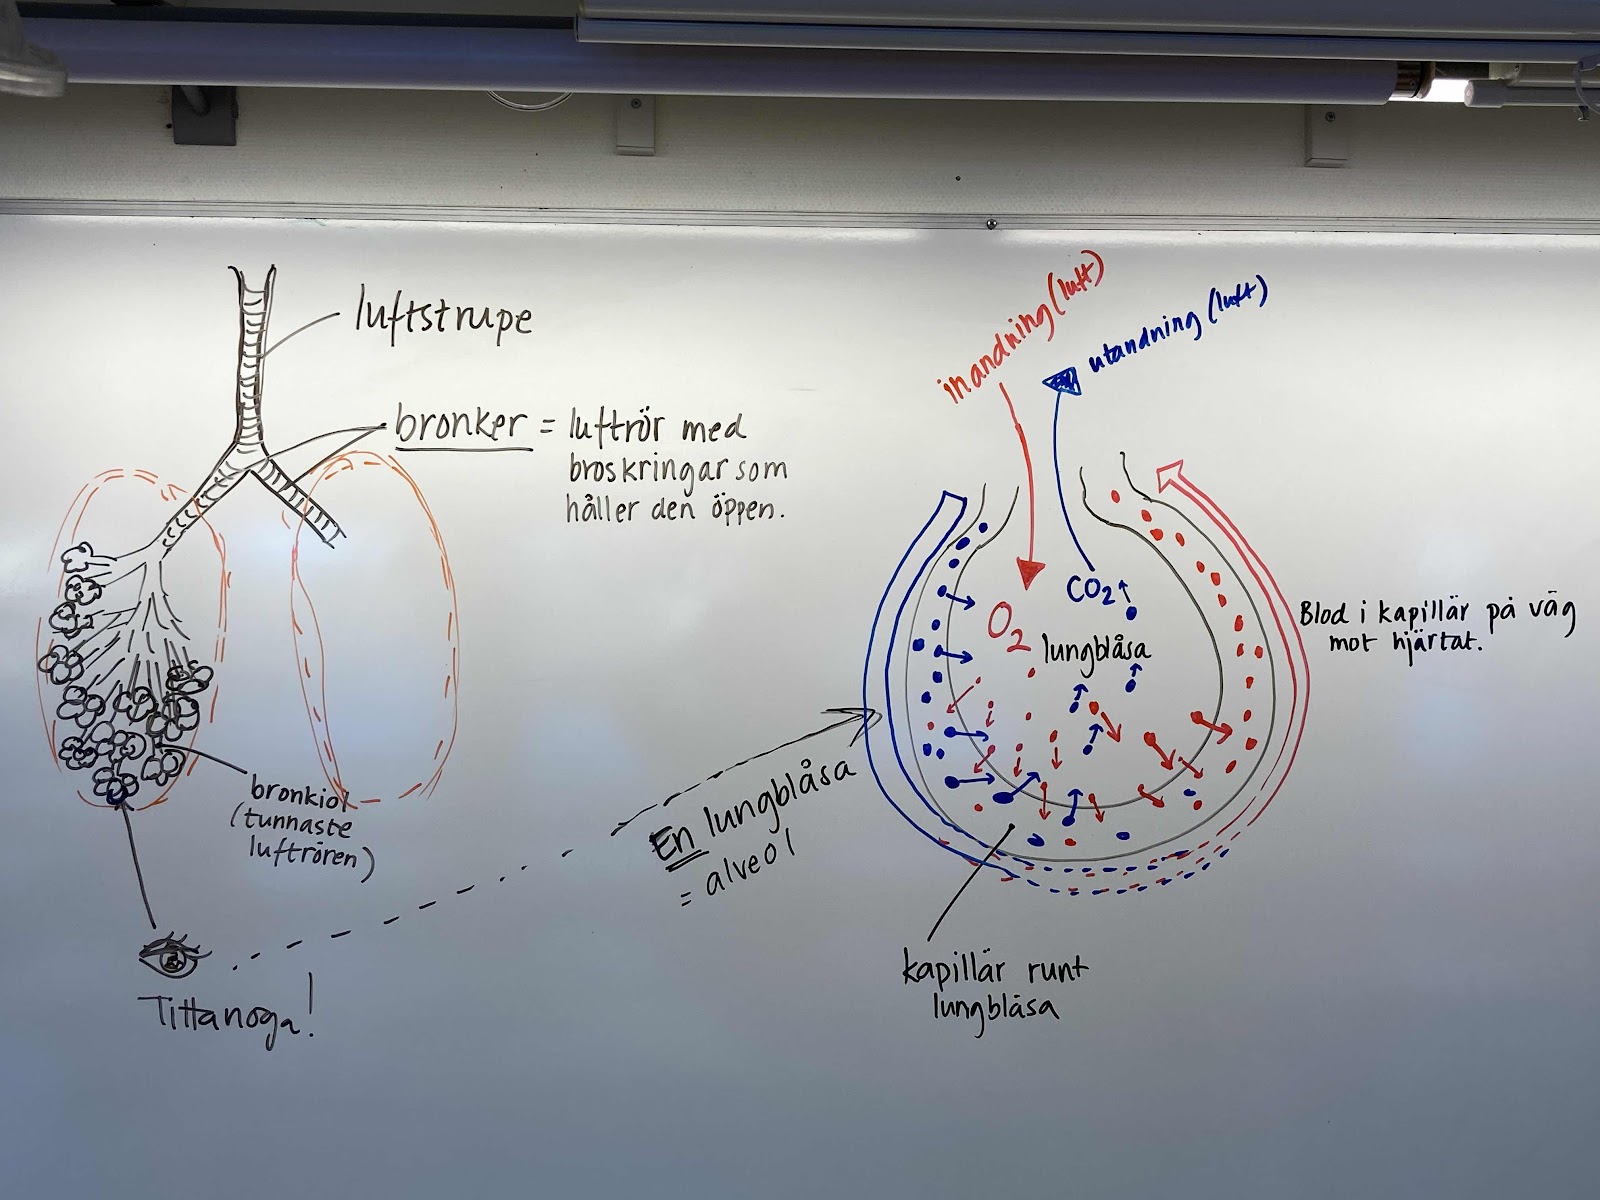 luftstrupe
bronker = luftrör med
broskringar som
håller den öppen.
bronkiol
(tunnaste
luftrören)
Titta noga!
En lungblåsa
= alveol
inandning (luft)
utandning (luft)
O2
CO2
lungblåsa
Blod i kapillär på väg
mot hjärtat.
kapillär runt
lungblåsa